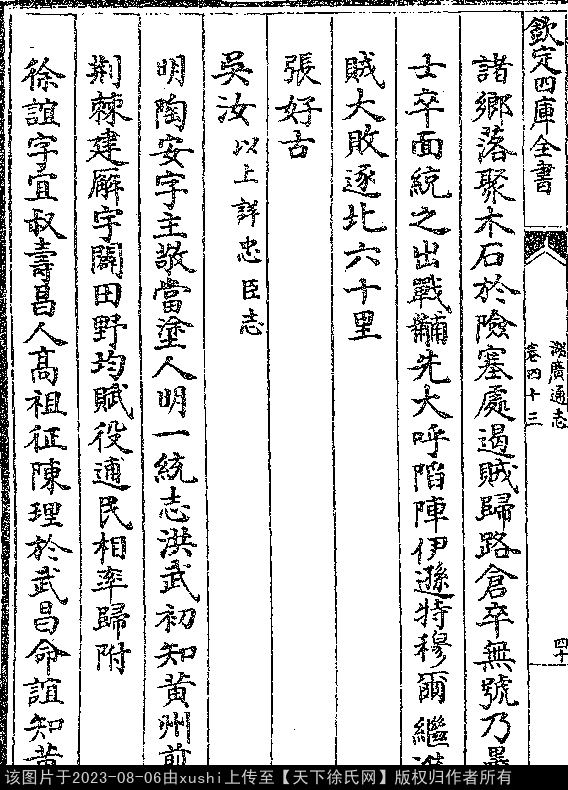 欽定四庫全書
湖廣通志
卷四十三
四十
諸鄉落聚木石於險塞處遏賊歸路倉卒無號乃墨
士卒面統之出戰黼先大呼陷陣伊遜特穆爾繼進
賊大敗逐北六十里
張好古
吳汝以上詳忠臣志
明陶安字主敬當塗人明一統志洪武初知黃州前
荆棘建廨宇闢田野均賦役逋民相率歸附
徐誼字宜叔壽昌人髙祖征陳理於武昌命誼知黃
该图片于2023-08-06由xushi上传至【天下徐氏网】版权归作者所有